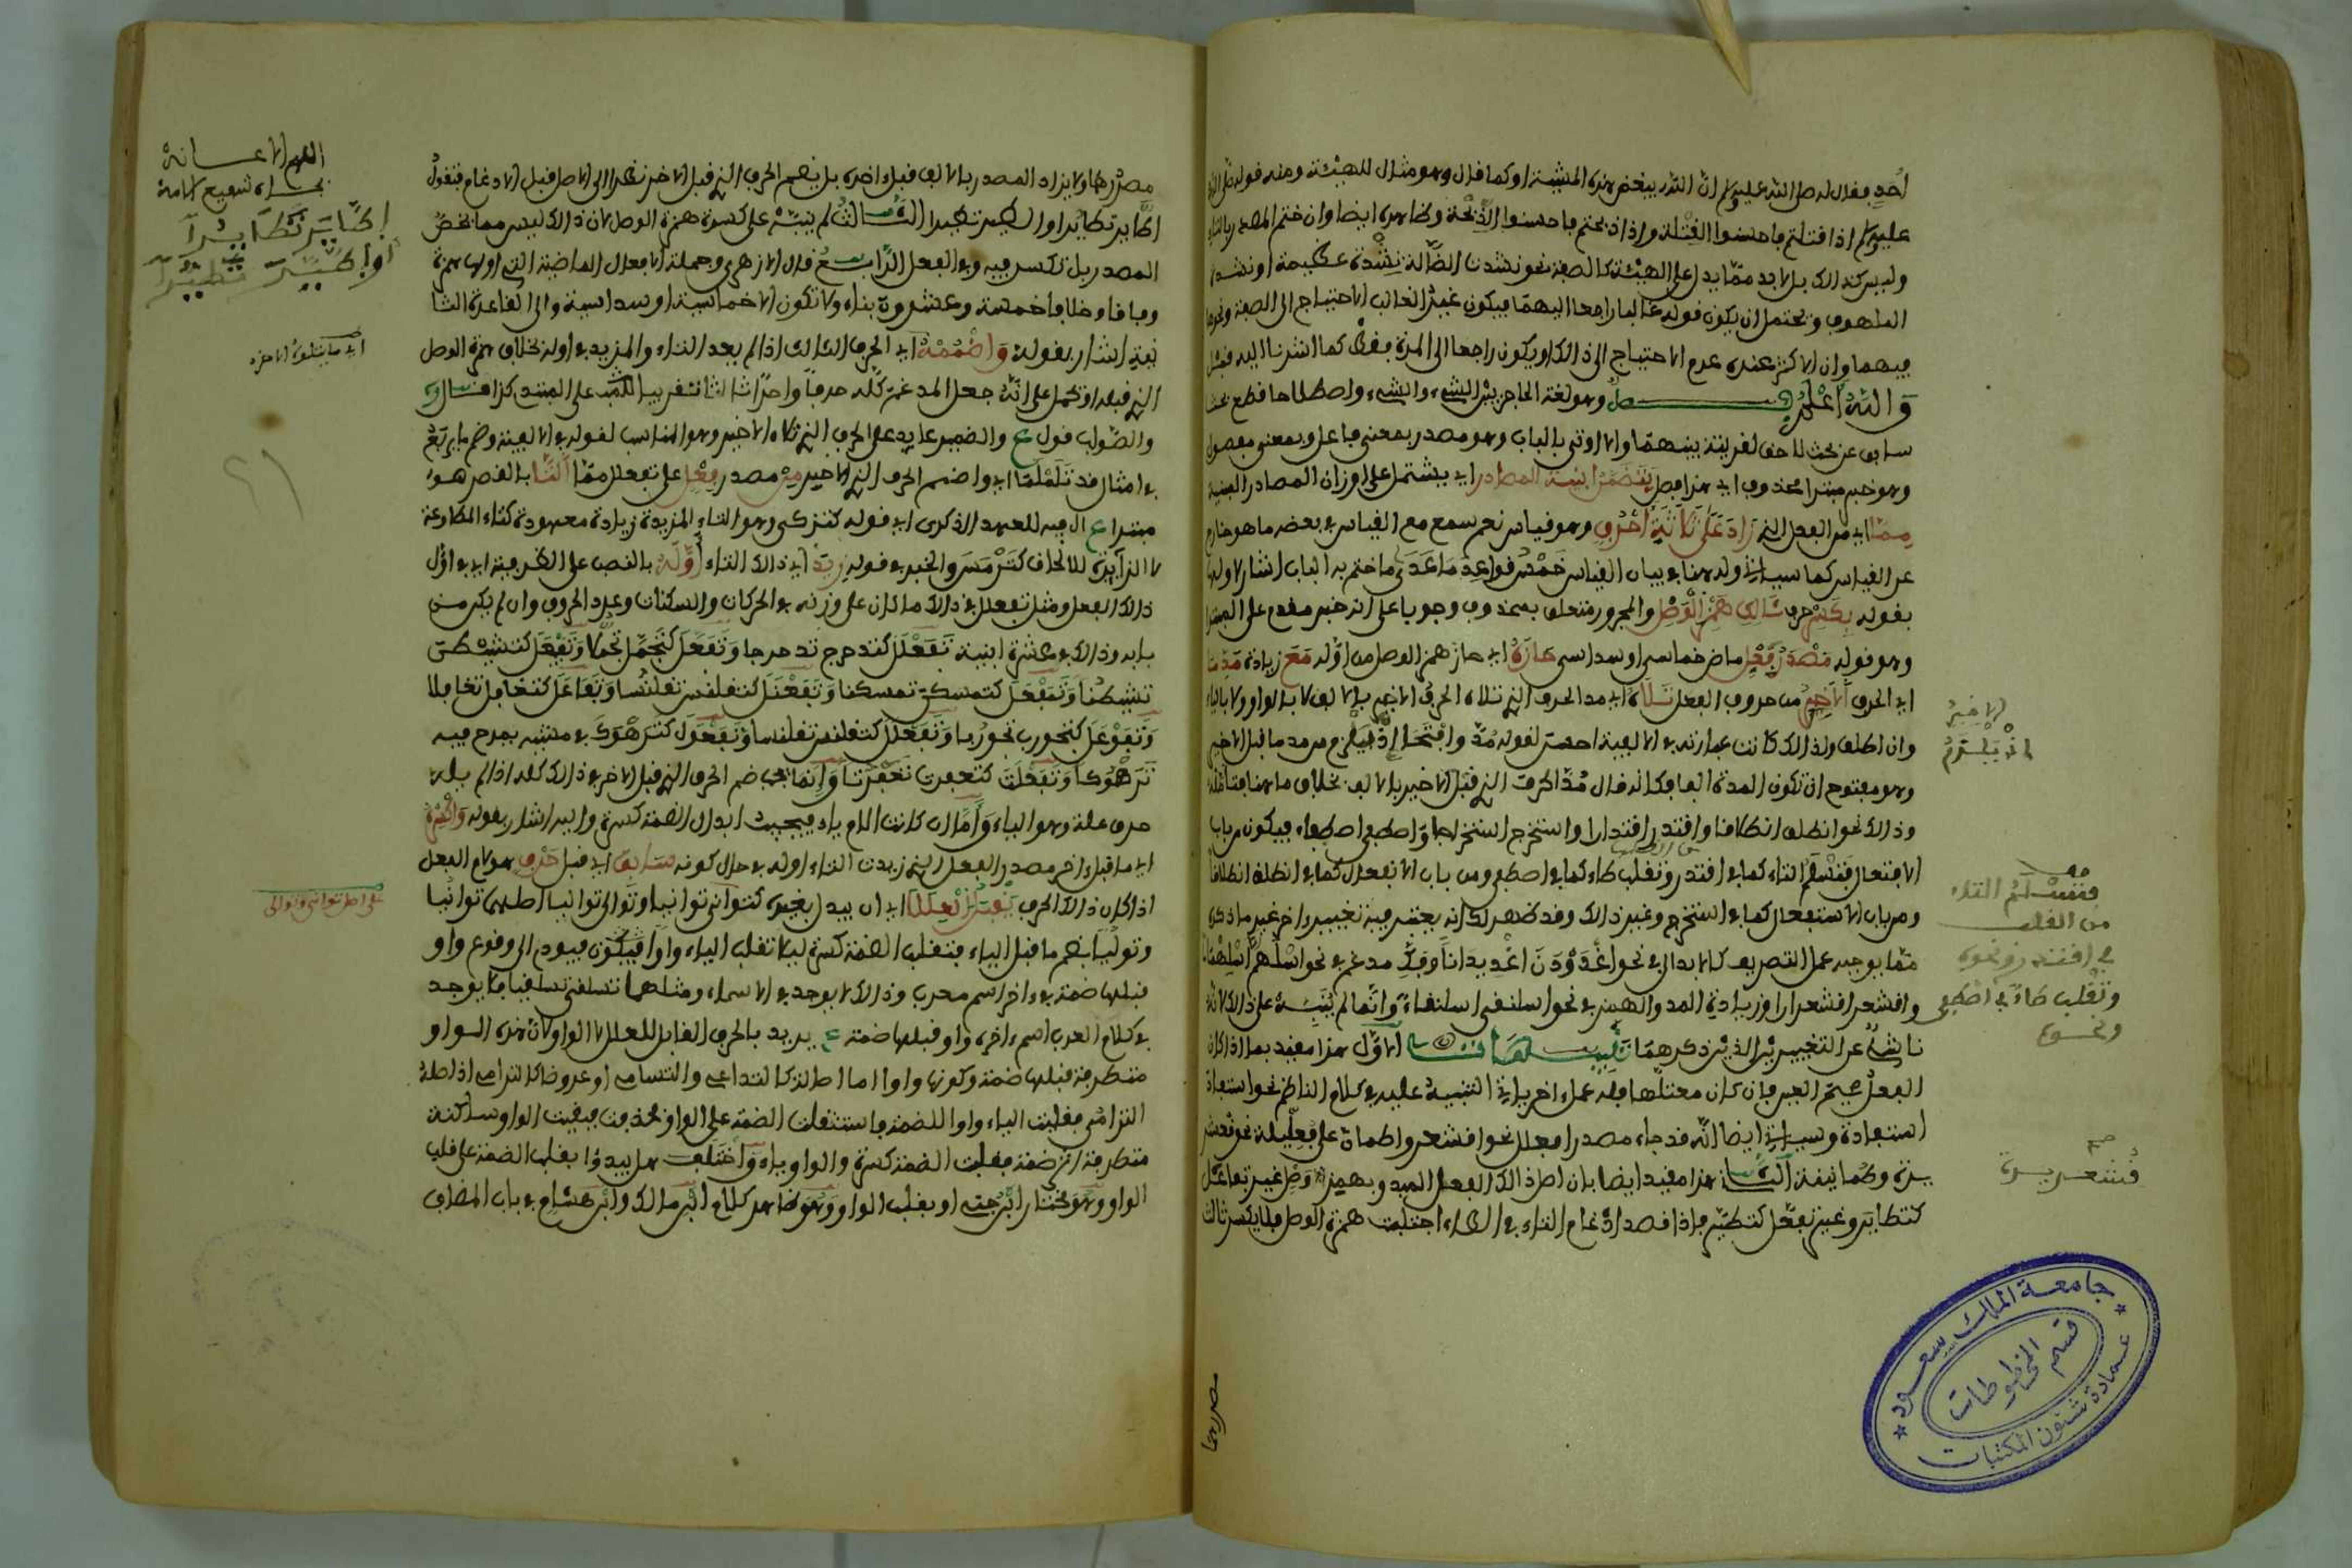 أحد فقال له صلى الله عليه وسلم ان الله يبغض هذه المشية او كما قال وهو مثال للهيئة ومنه قوله صلى الله
عليه وسلم اذا قتلتم فاحسنوا القِتْلة واذا ذبحتم فاحسنوا الذِّبْحة وظاهره ايضا وان ختم المصدر بالتاء
وليس كذلك بل لا بد مما يدل على الهيئة كالصفة نحو نشدت الضالة نِشْدة عظيمة او نشدة
الملهوف ويحتمل ان يكون قوله غالبا راجعا اليهما فيكون غير الغالب الاحتياج الى الصفة ونحوها
فيهما وان الاكثر عنده عدم الاحتياج الى ذالك او يكون راجعا الى المرة فقط كما اشرنا اليه قبل
وَاللهُ أَعْلَمُ فصل وهو لغة الحاجز بين الشيء والشيء واصطلاحا قطع بحث
سابق عن بحث لاحق لقرينة بينهما والا اوتي بالباب وهو مصدر بمعنى فاعل وبمعنى مفعول
وهو خبر مبتدا محذوف اي هذا فصل يتضمن ابنية المصادر اي يشتمل على اوزان المصادر المبنية
مما اي من الفعل الذي زَادَ عَلَى ثَلَاثَةِ أَحْرُفٍ وهو قياس نعم سمع مع القياس في بعضه ما هو خارج
عن القياس كما سياتي وله هنا في بيان القياس خَمْسُ قواعد ما عدى ما ختم به الباب اشار لاولها
بقوله بِكَسْرِ حرف ثَالِثِ هَمْزِ الْوَصْلِ والمجرور متعلق بمحذوف وجوبا على انه خبر مقدم على المبتدا
وهو قوله مَصْدَرُ فِعْلِ ماض خماسي او سداسي حَازَهُ اي حاز همز الوصل من اوله مَعَ زيادة مَدِّ مَا
اي الحرف الْأَخِيرُ من حروف الفعل تَلَاهُ اي مد الحرف الذي تلاه الحرف الاخير بالالف لا بالواو ولا بالياء
وان اطلق ولذالك كانت عبارته في الالفية احسن لقوله مُدَّ وافتحا إذْ لم يلزم من مد ما قبل الاخير
وهو مفتوح ان تكون المدة الفا فكانه قال مُدَّ الحرف الذي قبل الاخير بالالف بخلاف ما هنا فتامله
وذالك نحو انطلق انطلاقا واقتدر اقتدارا واستخرج استخراجا واصطفى اصطفاء فيكون من باب
الافتعال فَتَسْلَمُ التاء كما في اقتدر وتقلب طاء كما في اصطفى ومن باب الانفعال كما في انطلق انطلاقا
ومن باب الاستفعال كما في استخرج وغير ذالك وقد ظهر لك انه يغتفر فيه تغيير ءاخر غير ما ذكر
مما يوجبه عمل التصريف كالابدال في نحو اغْدَوْدَنَ اغْدِيدَانًا وفك مدغم في نحو
واقشعر اقشعرارا وزيادة المد والهمز في نحو اسلنقى اسلنقاءً وانما لم يُنَبِّهْ على ذالك لانه
ناشئ عن التغييرين الذين ذكرهما تنبيهات الاول هذا مقيد بما اذا كان
الفعل صحيح العين فان كان معتلها فله عمل ءاخر ياتي التنبيه عليه في كلام الناظم نحو استعاذ
استعاذة وسياتي ايضا انه قد جاء مصدر افعلل نحو اقشعر واطمأن على فُعَلِّيلة نحو قشعر
يرة وطمانينة الثاني هذا مقيد ايضا بان اصل ذالك الفعل المبدو بهمزة وصل غير تفاعل
كتطاير وغير تفعّل كتطيّر فاذا قصد ادغام التاء في الطاء اجتلبت همزة الوصل فلا يكسر ثالث
الاخير
اذ يلزم
صح
فتسلم التاء
من القلب
في اقتدر ونحوه
وتقلب طاء في اصطفى
ونحوه
صح
قشعريرة
مصدرهما
جامعة الملك سعود
قسم المخطوطات
عمادة شئون المكتبات
مصدرهما ولا يزاد المصدر بالالف قبل ءاخره بل يضم الحرف الذي قبل الاخر نظرا الى الاصل قبل الادغام فتقول
اطّاير تطايُرا او اطّير تطيّرا الثالث لم ينبّه على كسرة همزة الوصل لان ذالك ليس مما يخص
المصدر بل تكسر فيه وفي الفعل الرابع قال الازهري وجملة الافعال الماضية التي اولها همزة
وصل خمسة وعشرون بناء ولا تكون الا خماسية او سداسية والى القاعدة الثا
نية اشار بقوله وَاضْمُمْهُ اي الحرف الثالث اذا لم يعد التاء والمزيد في اوله بخلاف همزة الوصل
والصواب قول ع والضمير عايد على الحرف الذي تلاه الاخير وهو المناسب لقوله في الالفية وضم ما يربع
في امثال قد تَلَمْلَمَا اي واضمم الحرف الذي الاخير مِنْ مصدر فِعْلٍ على تفعلل مما التَّا بالقصر هو
مبتدا ع ال فيه للعهد الذكري اي قوله كتزكى وهو التاء المزيدة زيادة معهودة كتاء المطاوعة
لا الزايدة للالحاق كتَرْمَسَ والخبر في قوله زِيدَ اي ذالك التاء أَوَّلَهُ بالنصب على الظرفية اي في اول
ذالك الفعل ومثل تفعلل في ذالك ما كان على وزنه في الحركات والسكنات وعدد الحروف وان لم يكن من
بابه وذالك في عشرة ابنية تَفَعْلَلَ كتدحرج تدحرجا وَتَفَعَّلَ كتجمّل تجمّلا وَتَفَيْعَلَ كتشيطن
تشيطنا وَتَمَفْعَلَ كتمسكن تمسكنا وَتَفَعْنَلَ كتقلنس تقلنُسا وَتَفَاعَلَ كتغافل تغافلا
وَتَفَوْعَلَ كتجورب تجورُبا وَتَفَعْوَلَ كترهوك في مشيه يمرح فيه
تَرَهْوُكا وَتَفَعْلَتَ كتعفرت تَعَفْرُتا وَإنما يجب ضم الحرف الذي قبل الاخر في ذالك كله اذا لم يكن
حرف علة وهو الياء وَأَمَّا ان كانت اللام ياء فيجب ابدال الضمة كسرة واليه اشار بقوله وَاكْسِرْهُ
اي ما قبل ءاخر مصدر الفعل الذي زيدت التاء اوله في حال كونه سَابِقَ اي قبل حَرْفٍ هو لام الفعل
اذا كان ذالك الحرف يَقْبَلُ الْعِلَلَا اي ان يبدل بغيره كتوانى توانيا وتوالى تواليا اصلهما توانُيا
وتواليًا بضم ما قبل الياء فتقلب الضمة كسرة ليلا تقلب الياء واوا فيكون فيودي الى وقوع واو
قبلها ضمة في ءاخر اسم معرب وذالك لا يوجد في الاسماء ومثلهما تسلقى تسلقيا فلا يوجد
في كلام العرب اسم ءاخره واو قبلها ضمة ع يريد بالحرف القابل للعلل الواو لان هذه الواو
متطرفة قبلها ضمة وكونها واوا اما اصالة كالتداعي والتسامي او عروضا كالترامي اذ اصله
الترامُي فقلبت الياء واوا للضمة فاستثقلت الضمة على الواو فحذفت فبقيت الواو ساكنة
متطرفة اثر ضمة فقلبت الضمة كسرة والواو ياء وَاختلف هل يبدؤا بقلب الضمة على قلب
الواو وهو مختار ابن جني او بقلب الواو وهو ظاهر كلام ابن مالك وابن هشام في باب المضاف
اللهم الاعانة
اطّايَرَ تَطَايُرًا
أو اطَّيَّرَ تَطَيُّرًا
على اصل توانى وتوالى